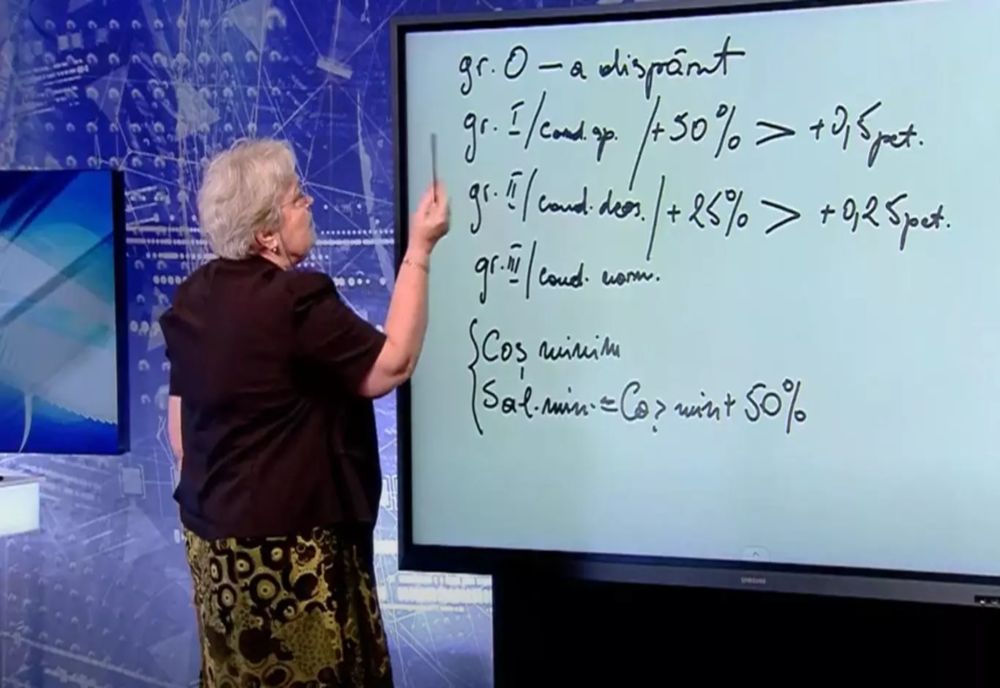 gr. 0 – a dispărut
gr. I / cond. sp. / +50% > +0,5 pct.
gr. II / cond. deos. / +25% > +0,25 pct.
gr. III / cond. norm.
Coș minim
Sal. min. = Coș min + 50%
SAMSUNG